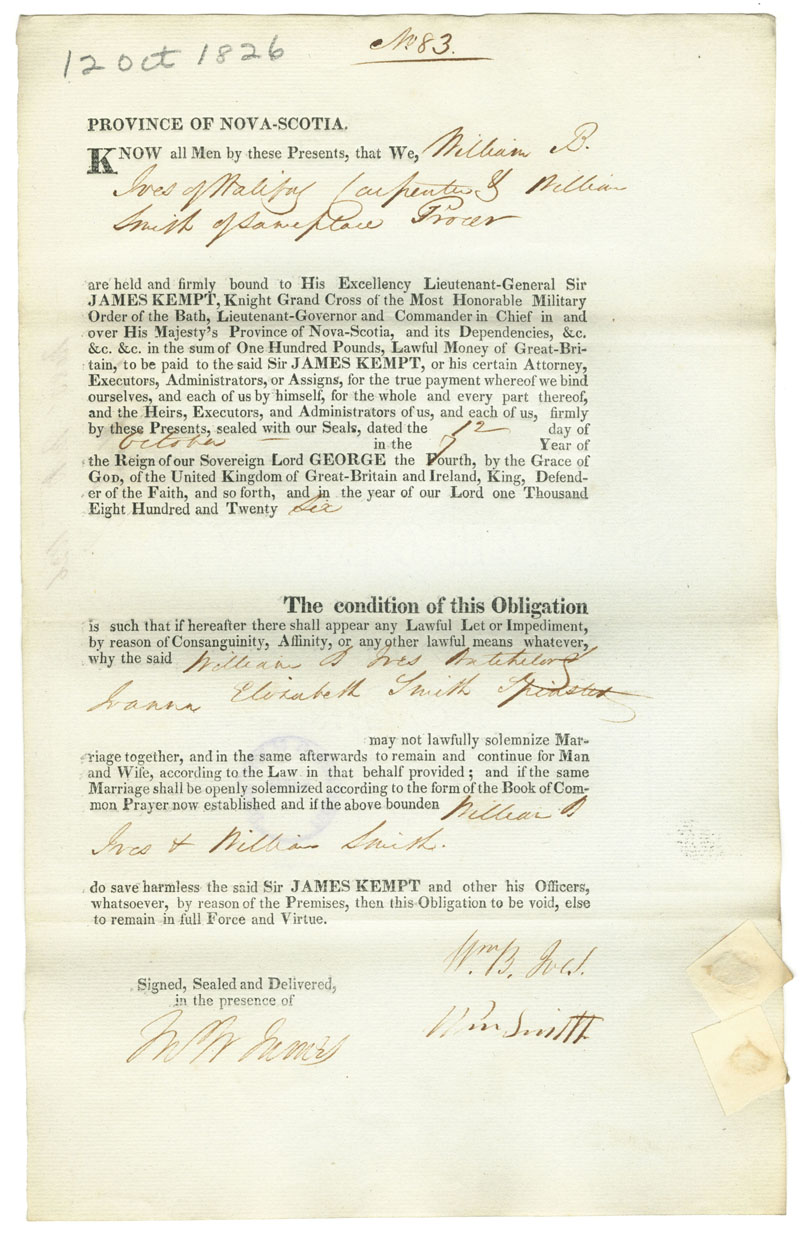 12 Oct 1826
No 83.
PROVINCE OF NOVA-SCOTIA.
KNOW all Men by these Presents, that We, William B.
Ives of Halifax Carpenter & William
Smith of Same place Grocer
are held and firmly bound to His Excellency Lieutenant-General Sir
JAMES KEMPT, Knight Grand Cross of the Most Honorable Military
Order of the Bath, Lieutenant-Governor and Commander in Chief in and
over His Majesty's Province of Nova-Scotia, and its Dependencies, &c.
&c. &c. in the sum of One Hundred Pounds, Lawful Money of Great-Bri-
tain, to be paid to the said Sir JAMES KEMPT, or his certain Attorney,
Executors, Administrators, or Assigns, for the true payment whereof we bind
ourselves, and each of us by himself, for the whole and every part thereof,
and the Heirs, Executors, and Administrators of us, and each of us, firmly
by these Presents, sealed with our Seals, dated the 12 day of
October in the 7 Year of
the Reign of our Sovereign Lord GEORGE the Fourth, by the Grace of
GOD, of the United Kingdom of Great-Britain and Ireland, King, Defend-
er of the Faith, and so forth, and in the year of our Lord one Thousand
Eight Hundred and Twenty Six
The condition of this Obligation
is such that if hereafter there shall appear any Lawful Let or Impediment,
by reason of Consanguinity, Affinity, or any other lawful means whatever,
why the said William B Ives Batchelor &
Joanna Elizabeth Smith Spinster
may not lawfully solemnize Mar-
riage together, and in the same afterwards to remain and continue for Man
and Wife, according to the Law in that behalf provided; and if the same
Marriage shall be openly solemnized according to the form of the Book of Com-
mon Prayer now established and if the above bounden William B
Ives & William Smith.
do save harmless the said Sir JAMES KEMPT and other his Officers,
whatsoever, by reason of the Premises, then this Obligation to be void, else
to remain in full Force and Virtue.
Wm. B. Ives.
Signed, Sealed and Delivered,
in the presence of
Wm Smith
James